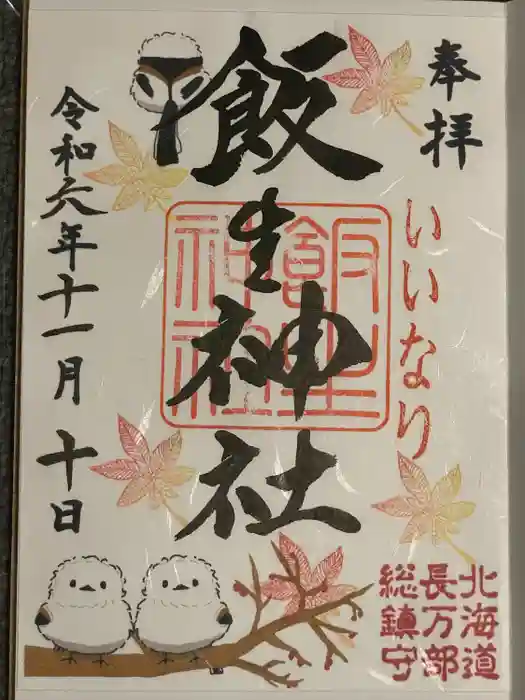 奉拝
いいなり
飯生神社
飯生神社
令和六年十一月十日
北海道
長万部
総鎮守